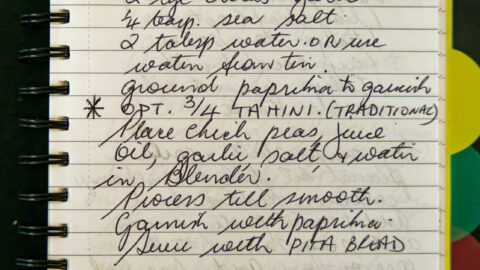 1/4 teasp. sea salt.
2 tablsp water. OR use
water from tin.
ground paprika to garnish
* OPT. 3/4 TAHINI. (TRADITIONAL)
Place chick peas, juice
oil, garlic, salt, & water
in, Blender.
Process till smooth.
Garnish with paprika.
Serve with PITA BREAD